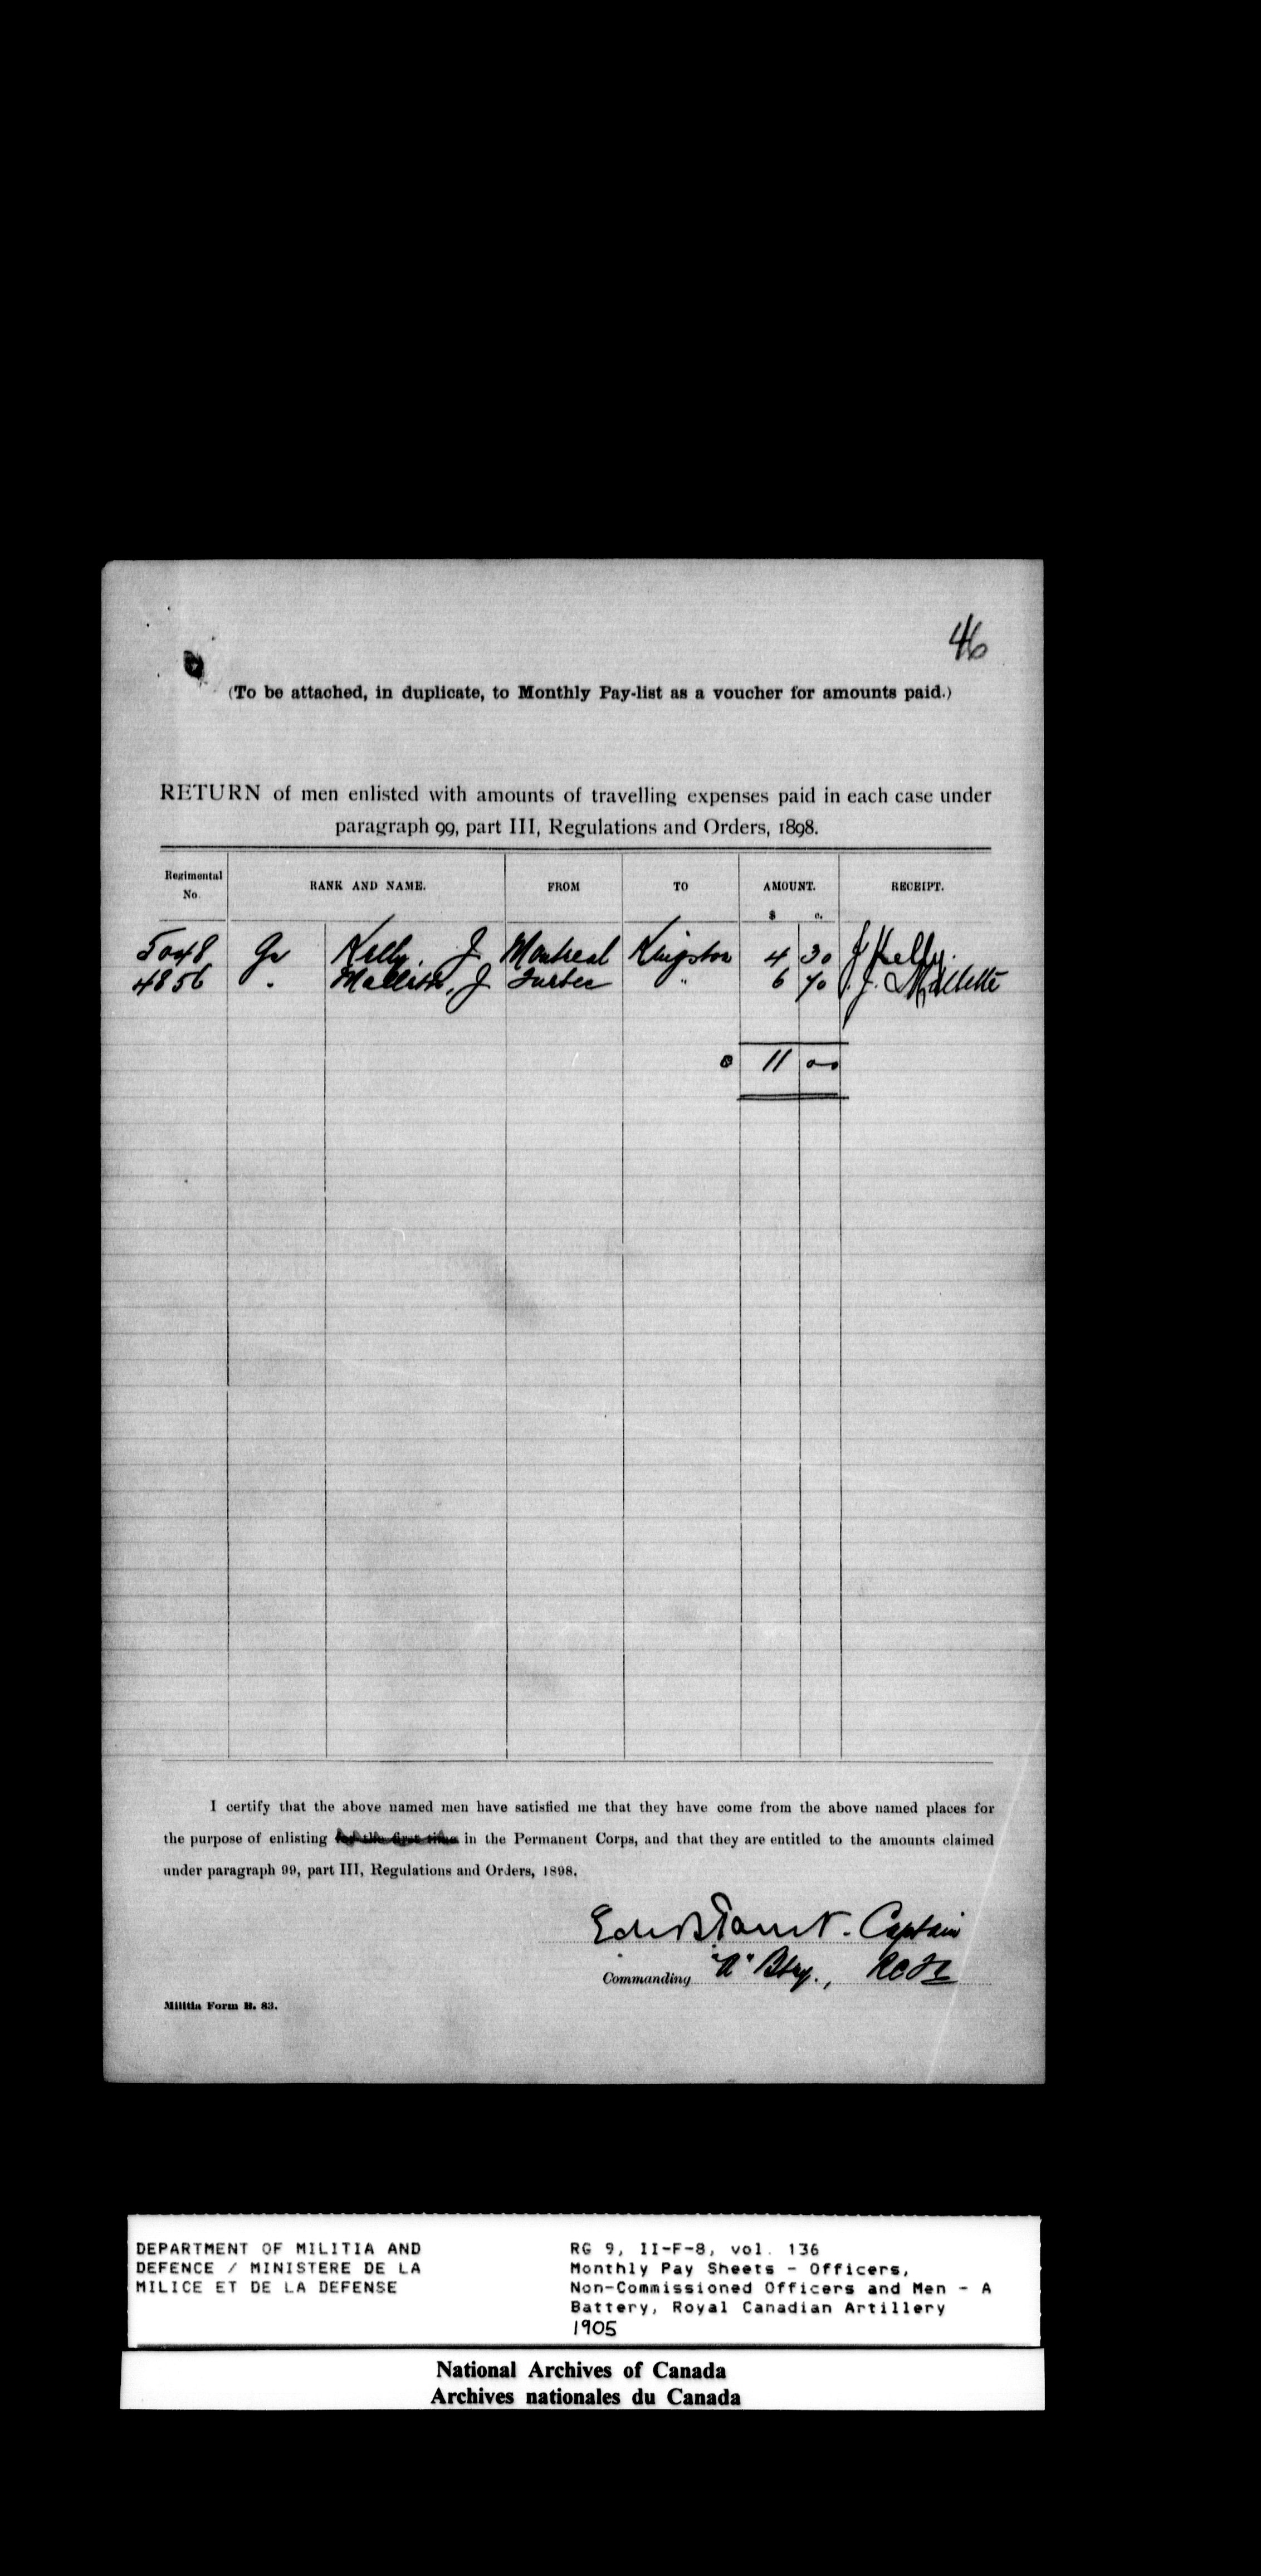 46
(To be attached, in duplicate, to Monthly Pay-list as a voucher for amounts paid.)
RETURN of men enlisted with amounts of travelling expenses paid in each case under
paragraph 99, part III, Regulations and Orders, 1898.
Regimental No. RANK AND NAME. FROM TO AMOUNT. RECEIPT.
$ c.
5048 Gr Kelly, J Montreal Kingston 4 30 J Kelly.
4856 " J Quebec " 6 70 J. Mallette
$ 11 00
I certify that the above named men have satisfied me that they have come from the above named places for
the purpose of enlisting for the first time in the Permanent Corps, and that they are entitled to the amounts claimed
under paragraph 99, part III, Regulations and Orders, 1898.
Captain
Commanding "A" Bty.,
Militia Form B. 83.
DEPARTMENT OF MILITIA AND
DEFENCE / MINISTERE DE LA
MILICE ET DE LA DEFENSE
RG 9, II-F-8, vol. 136
Monthly Pay Sheets - Officers,
Non-Commissioned Officers and Men - A
Battery, Royal Canadian Artillery
1905
National Archives of Canada
Archives nationales du Canada